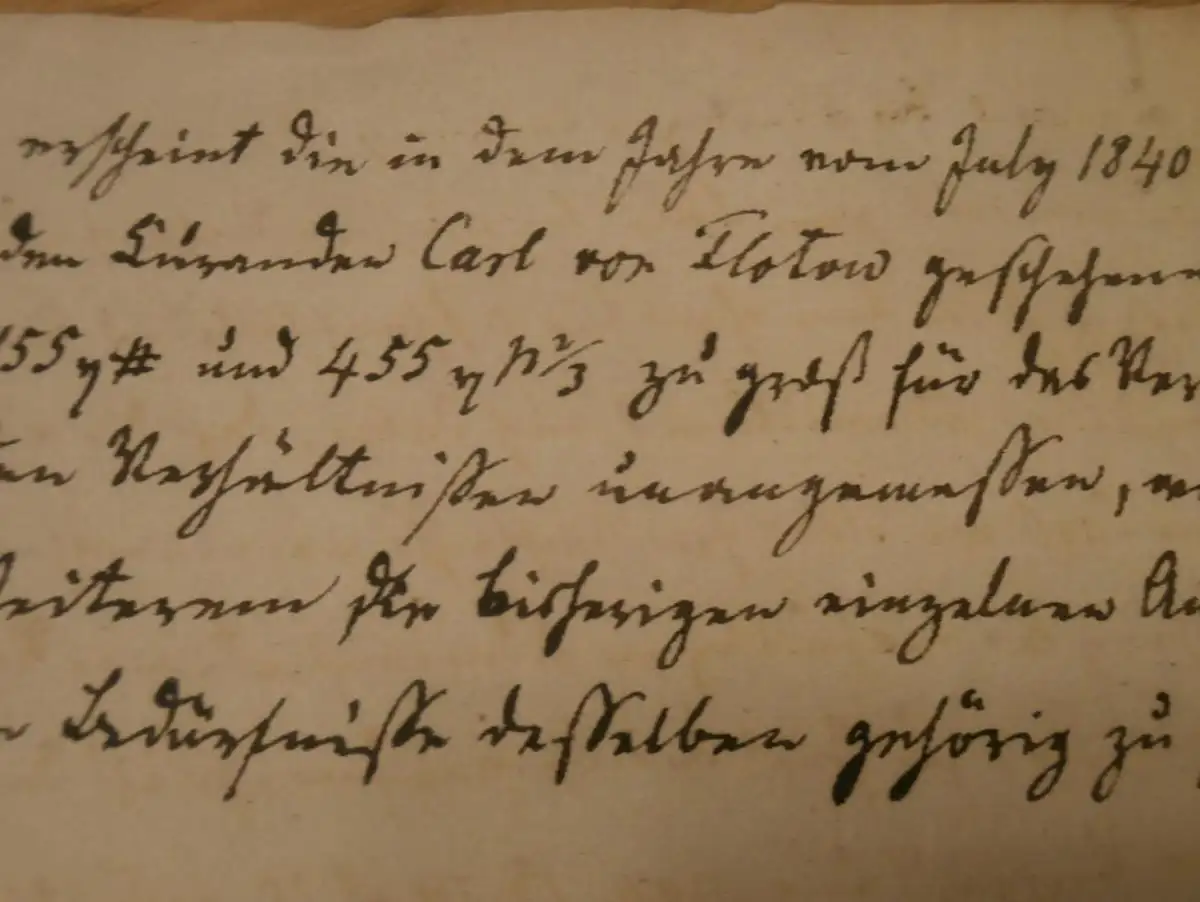 erscheint die in dem Jahre vom July 1840
den Curanden Carl von Flotow geschehene
155 und 455 zu groß für das Ver
en Verhältnissen unangemessen,
Weiterem die bisherigen einzelnen
Bedürfnisse desselben gehörig zu